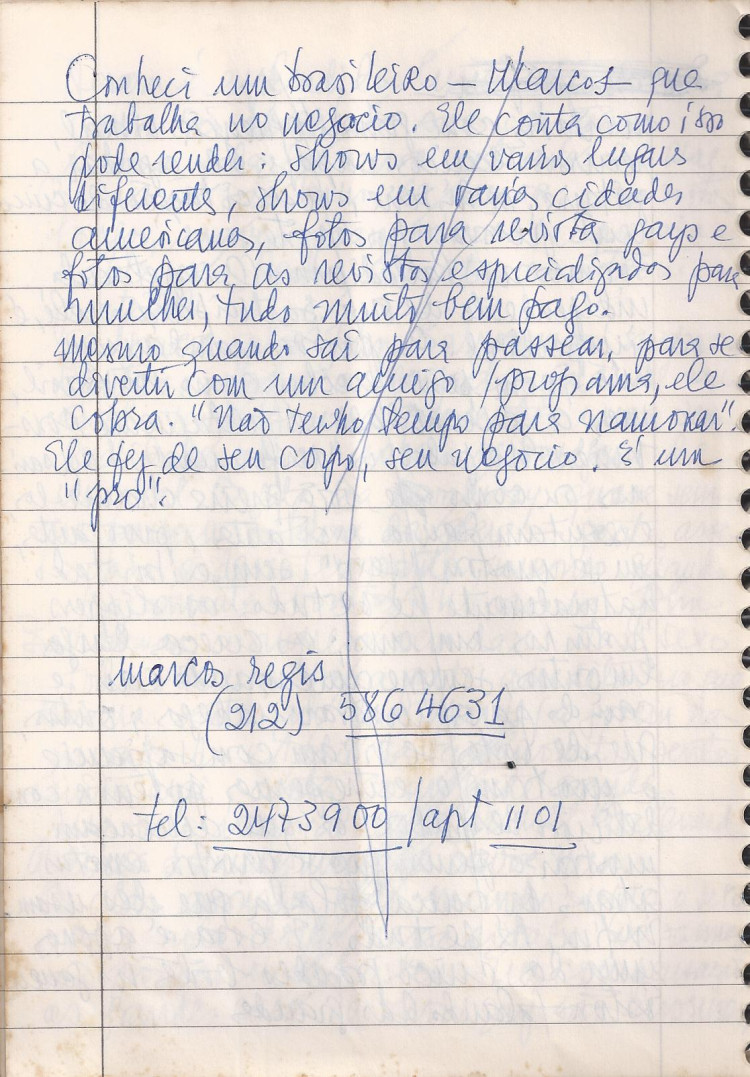 Conheci um brasileiro – Marcos – que
trabalha no negocio. Ele conta como isso
pode render: shows em varios lugares
diferentes, shows em varias cidades
americanas, fotos para revista gays e
fotos para as revistas especializadas para
mulher, tudo muito bem pago.
mesmo quando sai para passear, para se
divertir com um amigo / programa, ele
cobra. "Não tenho tempo para namorar".
Ele fez de seu corpo, seu negocio. É um
"pro".
marcos regis
(212) 586 4631
tel: 2473900 / apt 1101